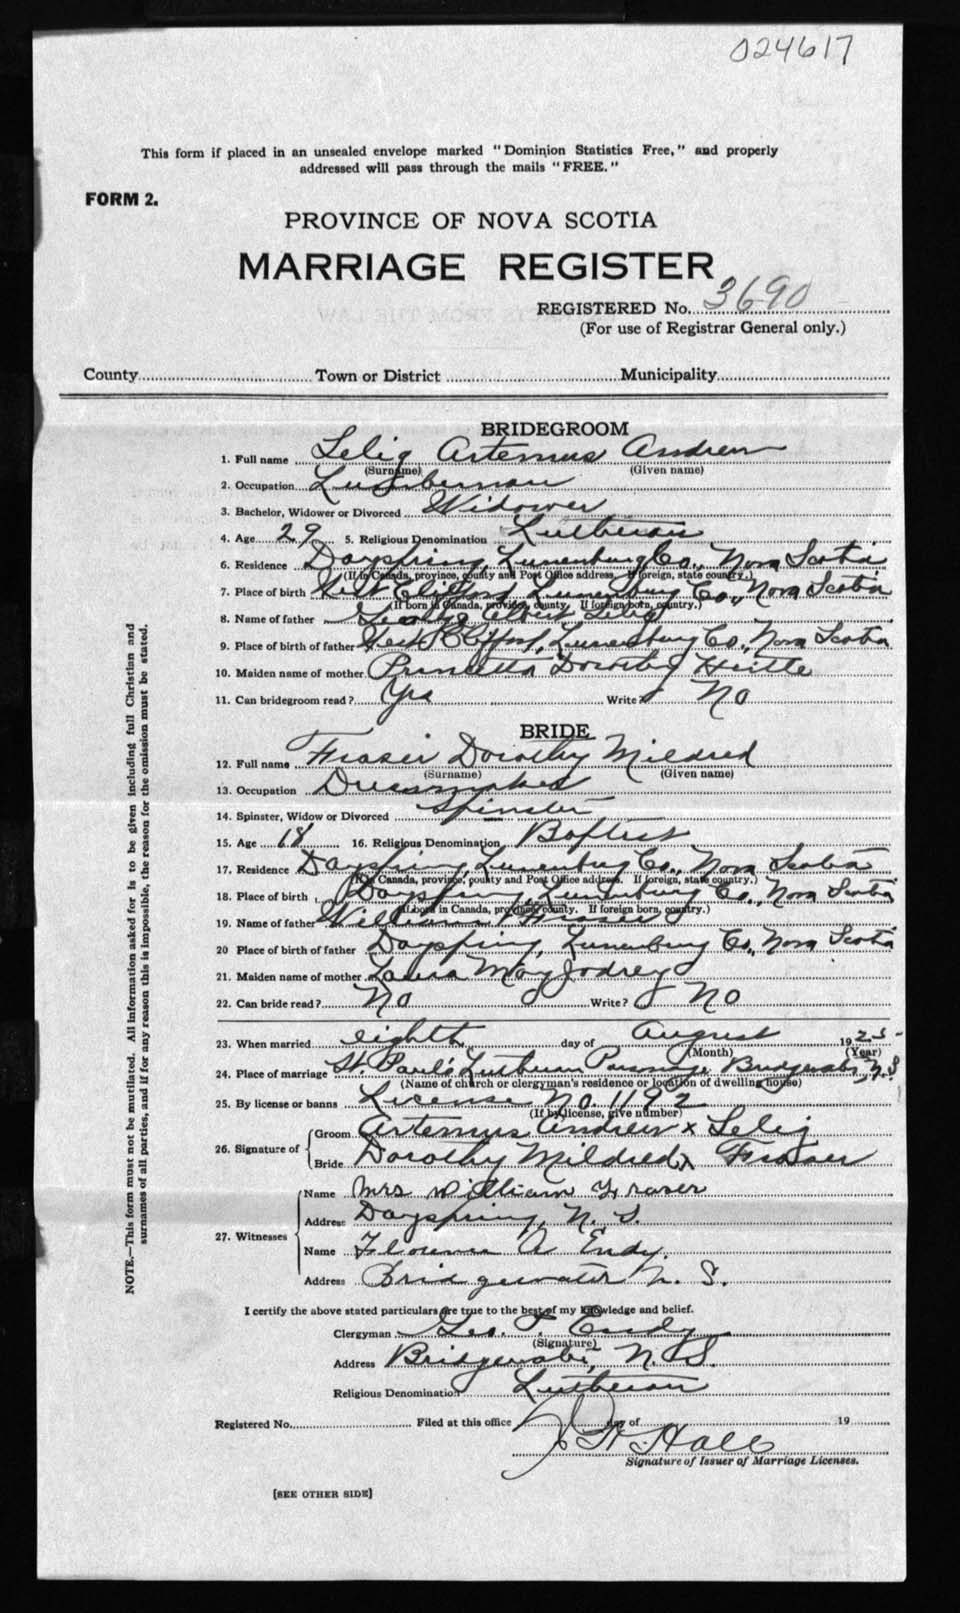 024617
This form if placed in an unsealed envelope marked "Dominion Statistics Free," and properly
addressed will pass through the mails "FREE."
FORM 2.
PROVINCE OF NOVA SCOTIA
MARRIAGE REGISTER
REGISTERED No. 3690
(For use of Registrar General only.)
County Town or District Municipality
BRIDEGROOM
1. Full name Selig Artemus Andrew
(Surname) (Given name)
2. Occupation Lumberman
3. Bachelor, Widower or Divorced Widower
4. Age 29 5. Religious Denomination Lutheran
6. Residence Dayspring, Lunenburg Co., Nova Scotia
(If in Canada, province, county and Post Office address. If foreign, state country.)
7. Place of birth West Clifford, Lunenburg Co., Nova Scotia
(If born in Canada, province, county. If foreign born, country.)
8. Name of father Selig
9. Place of birth of father West Clifford, Lunenburg Co., Nova Scotia
10. Maiden name of mother Dorothy Hirtle
11. Can bridegroom read? Yes Write? No
BRIDE
12. Full name Fraser Dorothy Mildred
(Surname) (Given name)
13. Occupation Dressmaker
14. Spinster, Widow or Divorced Spinster
15. Age 18 16. Religious Denomination Baptist
17. Residence Dayspring, Lunenburg Co., Nova Scotia
(If in Canada, province, county and Post Office address. If foreign, state country.)
18. Place of birth Dayspring, Lunenburg Co., Nova Scotia
(If born in Canada, province, county. If foreign born, country.)
19. Name of father William Fraser
20 Place of birth of father Dayspring, Lunenburg Co., Nova Scotia
21. Maiden name of mother Laura May Jodrey
22. Can bride read? No Write? No
23. When married eighth day of August 1925
(Month) (Year)
24. Place of marriage St. Paul's Lutheran Parsonage Bridgewater, N.S.
(Name of church or clergyman's residence or location of dwelling house)
25. By license or banns License No. 1192
(If by license, give number)
26. Signature of Groom Artemus Andrew x Selig
Bride Dorothy Mildred x Fraser
27. Witnesses Name Mrs William Fraser
Address Dayspring, N. S.
Name A Endy.
Address Bridgewater N. S.
I certify the above stated particulars are true to the best of my knowledge and belief.
Clergyman Geo. Endy
(Signature)
Address Bridgewater, N.S.
Religious Denomination Lutheran
Registered No. Filed at this office day of 19
Signature of Issuer of Marriage Licenses.
[SEE OTHER SIDE]
NOTE.—This form must not be mutilated. All information asked for is to be given including full Christian and
surnames of all parties, and if for any reason this is impossible, the reason for the omission must be stated.